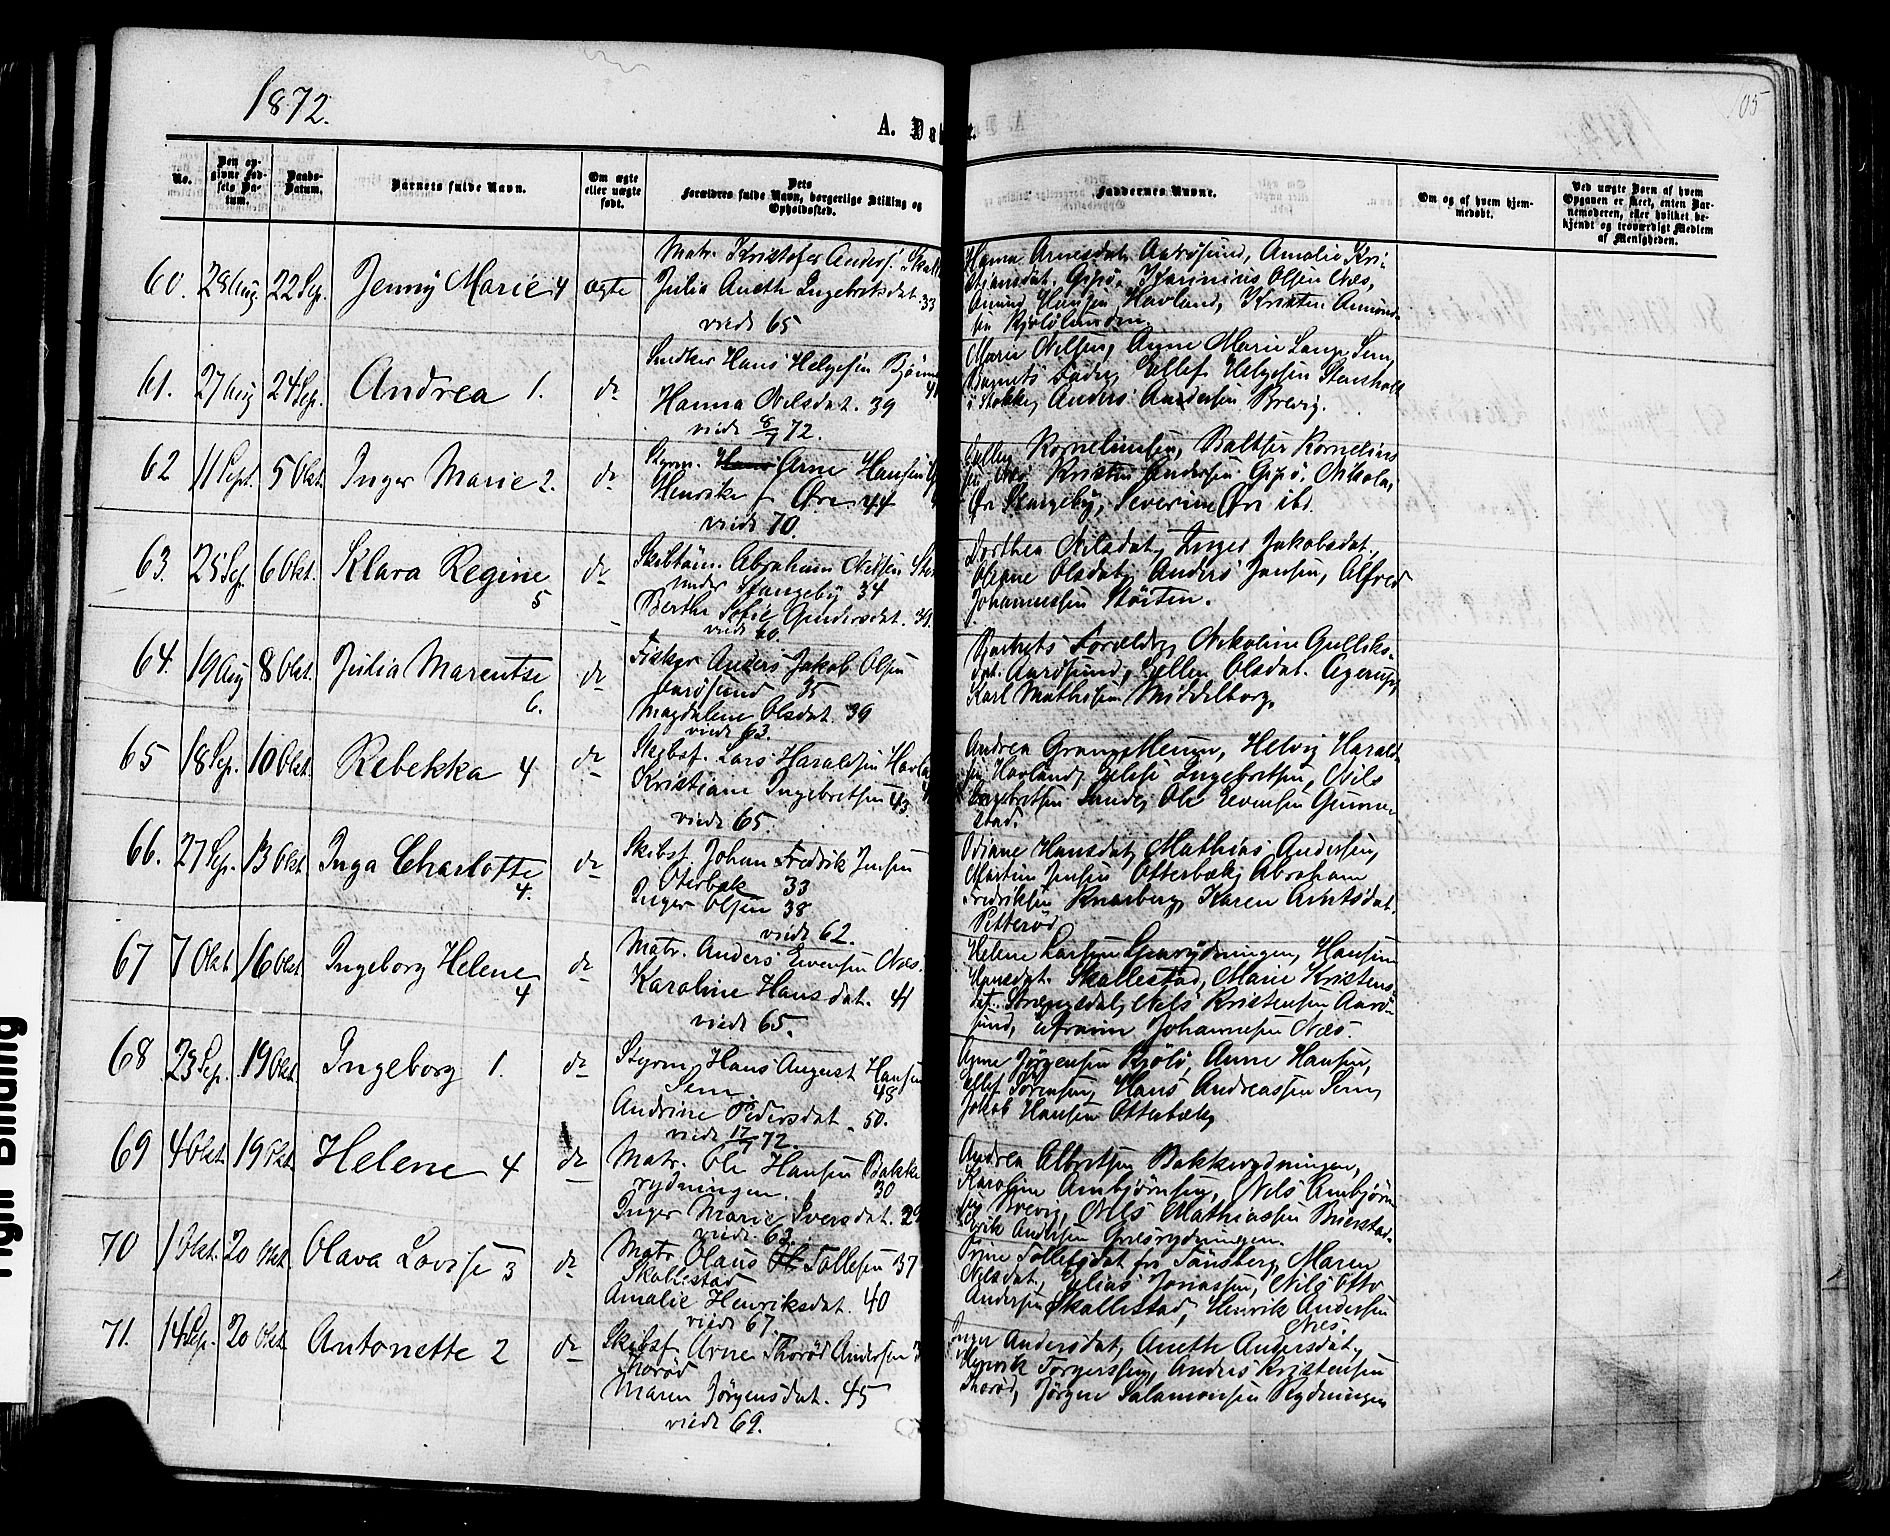 1872.
105
A. Døbte.
No.
Den opgivne Fødsels Datum.
Daabs-Datum.
Barnets fulde Navn.
Om ægte eller uægte født.
Dets Forældres fulde Navn, borgerlige Stilling og Opholdssted.
Faddernes Navne.
Om og af hvem hjemmedøbt.
Ved uægte Børn af hvem Opgaven er skeet, enten Barnemoderen, eller hvilket bekjendt og troværdigt Medlem af Menigheden.
60. 28 Aug. 22 Sep. Jenny Marie 4 ægte
Matr. Kristofer Anders.
Julia Anette Ingebriksdat. 33
viede 65
Hanna Arnesdat, Aarøsund, Amalie Kri-
stjansdat, Gipø, Olsen Næs,
Hansen Havland, Kristen Amund-
sen
61. 27 Aug 24 Sep. Andrea 1. do
Hans Helgesen
Hanna Nilsdat. 39
viede 8/7 72.
Marie Nilsen, Anne Marie Lange, Sem,
Barnets Fader, Ellef Helgesen
i Stokke, Anders Andersen Brevig.
62 11 Sept. 5 Okt. Inger Marie 2. do
Styrm. Arne Hansen
Henrike f. Øre 44
viede 70.
Kornelinssen, Baltser Kornelius-
sen, Næs, Kristen Andersen Gipø, Nikolai
Øre Stangeby, Severine Øre ibd.
63. 25 Sep. 6 Okt. Klara Regine 5 do
Skibtøm. Abraham Nilsen
under Stangeby 34
Berthe Sofie Gundersdat. 39.
viede 60.
Dorthea Nilsdat, Inger Jakobsdat.
Oleane Olsdat, Anders Jansen, Alfred
Johannessen Støiten.
64. 19 Aug 8 Okt. Julia Marentse 6. do
Fisker Anders Jakob Olsen
Aarøsund 35
Magdalene Olsdat. 39
viede 63.
Barnets Forældre, Nikoline Gulliks-
dat. Aarøsund, Ellen Olsdat. Agerup,
Karl Mathisen Middelborg,
65 18 Sep. 10 Okt. Rebekka 4 do
Skibsf. Lars Haraldsen
Kristiane Ingebretsen 43.
viede 65.
Andrea Helvig Harald-
sen Havland, Ingebretsen, Nils
Ingebretsen Sande, Ole Evensen Gunne-
stad.
66. 27 Sep. 13 Okt. Inga Charlotte 4. do
Skibsf. Johan Fredrik Jensen
Oterbæk 33
Inger Olsen 38
viede 62.
Hansdat, Mathias Andersen,
Martin Jensen Otterbæk, Abraham
Fredriksen Knarberg, Karen Arntsdat.
Petterød
67 7 Okt 16 Okt. Ingeborg Helene 4 do
Matr. Anders Evensen Næs.
Karoline Hansdat. 41
viede 65.
Helene Larsen
Hansdat. Skallestad, Marie Kristens-
dat. Nils Kristensen Aarø-
sund, Johannesen Næs.
68 23 Sep. 19 Okt. Ingeborg 1. do
Styrm Hans August Hansen
Sem 48
Andrine Pedersdat. 50.
viede 17/7 72.
Anne Jørgensen Kjøle, Anne Hansen,
Ellef Sørensen, Hans Andreassen Sem,
Jakob Hansen Otterbæk,
69 4 Okt. 19 Okt. Helene 4 do
Matr. Ole Hansen Bakke-
rydningen. 30
Inger Marie Iversdat. 29
viede 63.
Andrea Albretsen Bakkerydningen,
Karoline Ambjørnsen, Nils Ambjørn-
sen Brevig, Nils Mathiassen
Andersen
70 1 Okt. 20 Okt. Olava Lovise 3 do
Matr Olaus Tollesen 37
Skallestad
Amalie Henriksdat. 40
viede 67
Trine Tollefsdat fra Tønsberg, Maren
Nilsdat, Elias Jonassen, Nils Otto
Andersen Skallestad, Henrik Andersen
Næs.
71. 14 Sep. 20 Okt. Antonette 2 do
Skibsf. Arne Thorød Andersen
Thorød
Maren Jørgensdat. 45
viede 69.
Inger Andersdat, Anette Andersdat,
Henrik Torgersen, Anders Kristensen
Thorød, Jørgen Salamonsen Rydningen